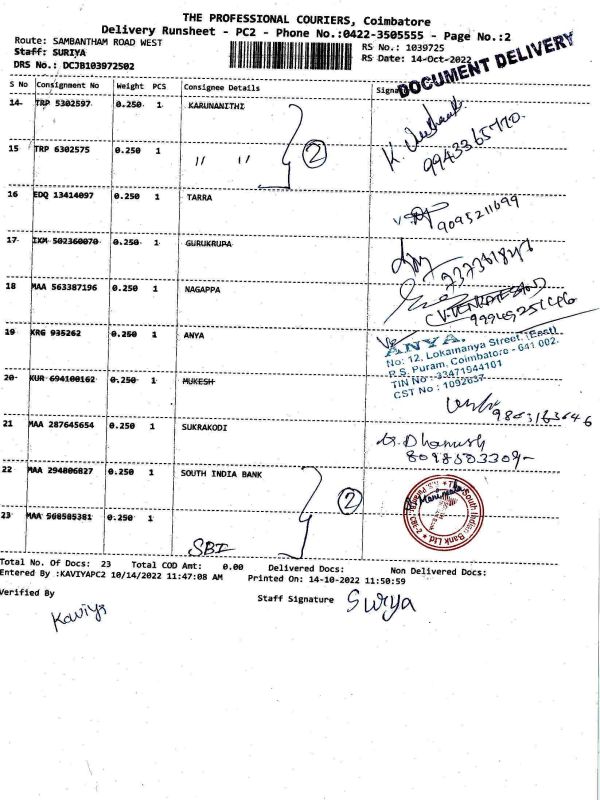 THE PROFESSIONAL COURIERS, Coimbatore
Delivery Runsheet - PC2 - Phone No.:0422-3505555 - Page No.:2
Route: SAMBANTHAM ROAD WEST
RS No.: 1039725
Staff: SURIYA
RS Date: 14-Oct-2022
DRS No.: DCJB103972502
DOCUMENT DELIVERY
S No Consignment No Weight PCS Consignee Details
14 TRP 5302597 0.250 1 KARUNANITHI
2
9943365770
15 TRP 6302575 0.250 1 " "
16 EDQ 13414097 0.250 1 TARRA
9095211699
17 IXM 502360070 0.250 1 GURUKRUPA
18 MAA 563387196 0.250 1 NAGAPPA
19 KRG 935262 0.250 1 ANYA
ANYA.
No: 12, Lokamanya Street, (East)
R.S. Puram, Coimbatore - 641 002.
TIN No : 33471944101
CST No : 1092637
20 KUR 694100162 0.250 1 MUKESH
9863163646
21 MAA 287645654 0.250 1 SUKRAKODI
G. Dhanush
8098503309
22 MAA 294806827 0.250 1 SOUTH INDIA BANK
2
The South Indian Bank Ltd.
23 MAA 560505381 0.250 1
SBI
Total No. Of Docs: 23 Total COD Amt: 0.00 Delivered Docs: Non Delivered Docs:
Entered By :KAVIYAPC2 10/14/2022 11:47:08 AM Printed On: 14-10-2022 11:50:59
Verified By
Staff Signature Surya
Kaviya